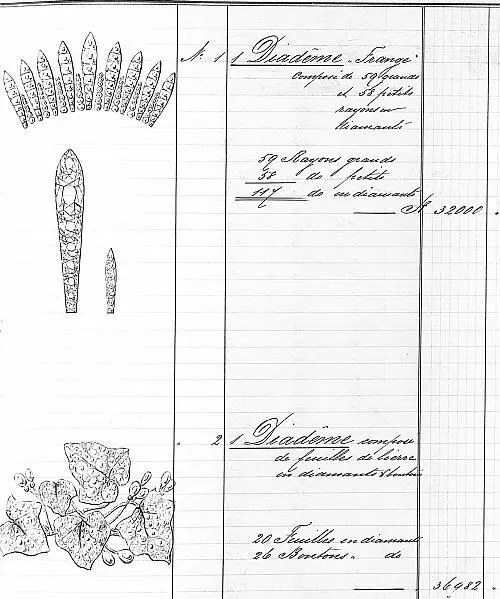 Nº 1 1 Diadême „Frange"
composé de 59 grands
et 58 petits
rayons en
diamants
59 Rayons grands
58 do petits
117 do en diamants
32000
2 1 Diadême composé
de feuilles de lierre
en diamants & boutons
20 Feuilles en diamants
26 Boutons " do
36982